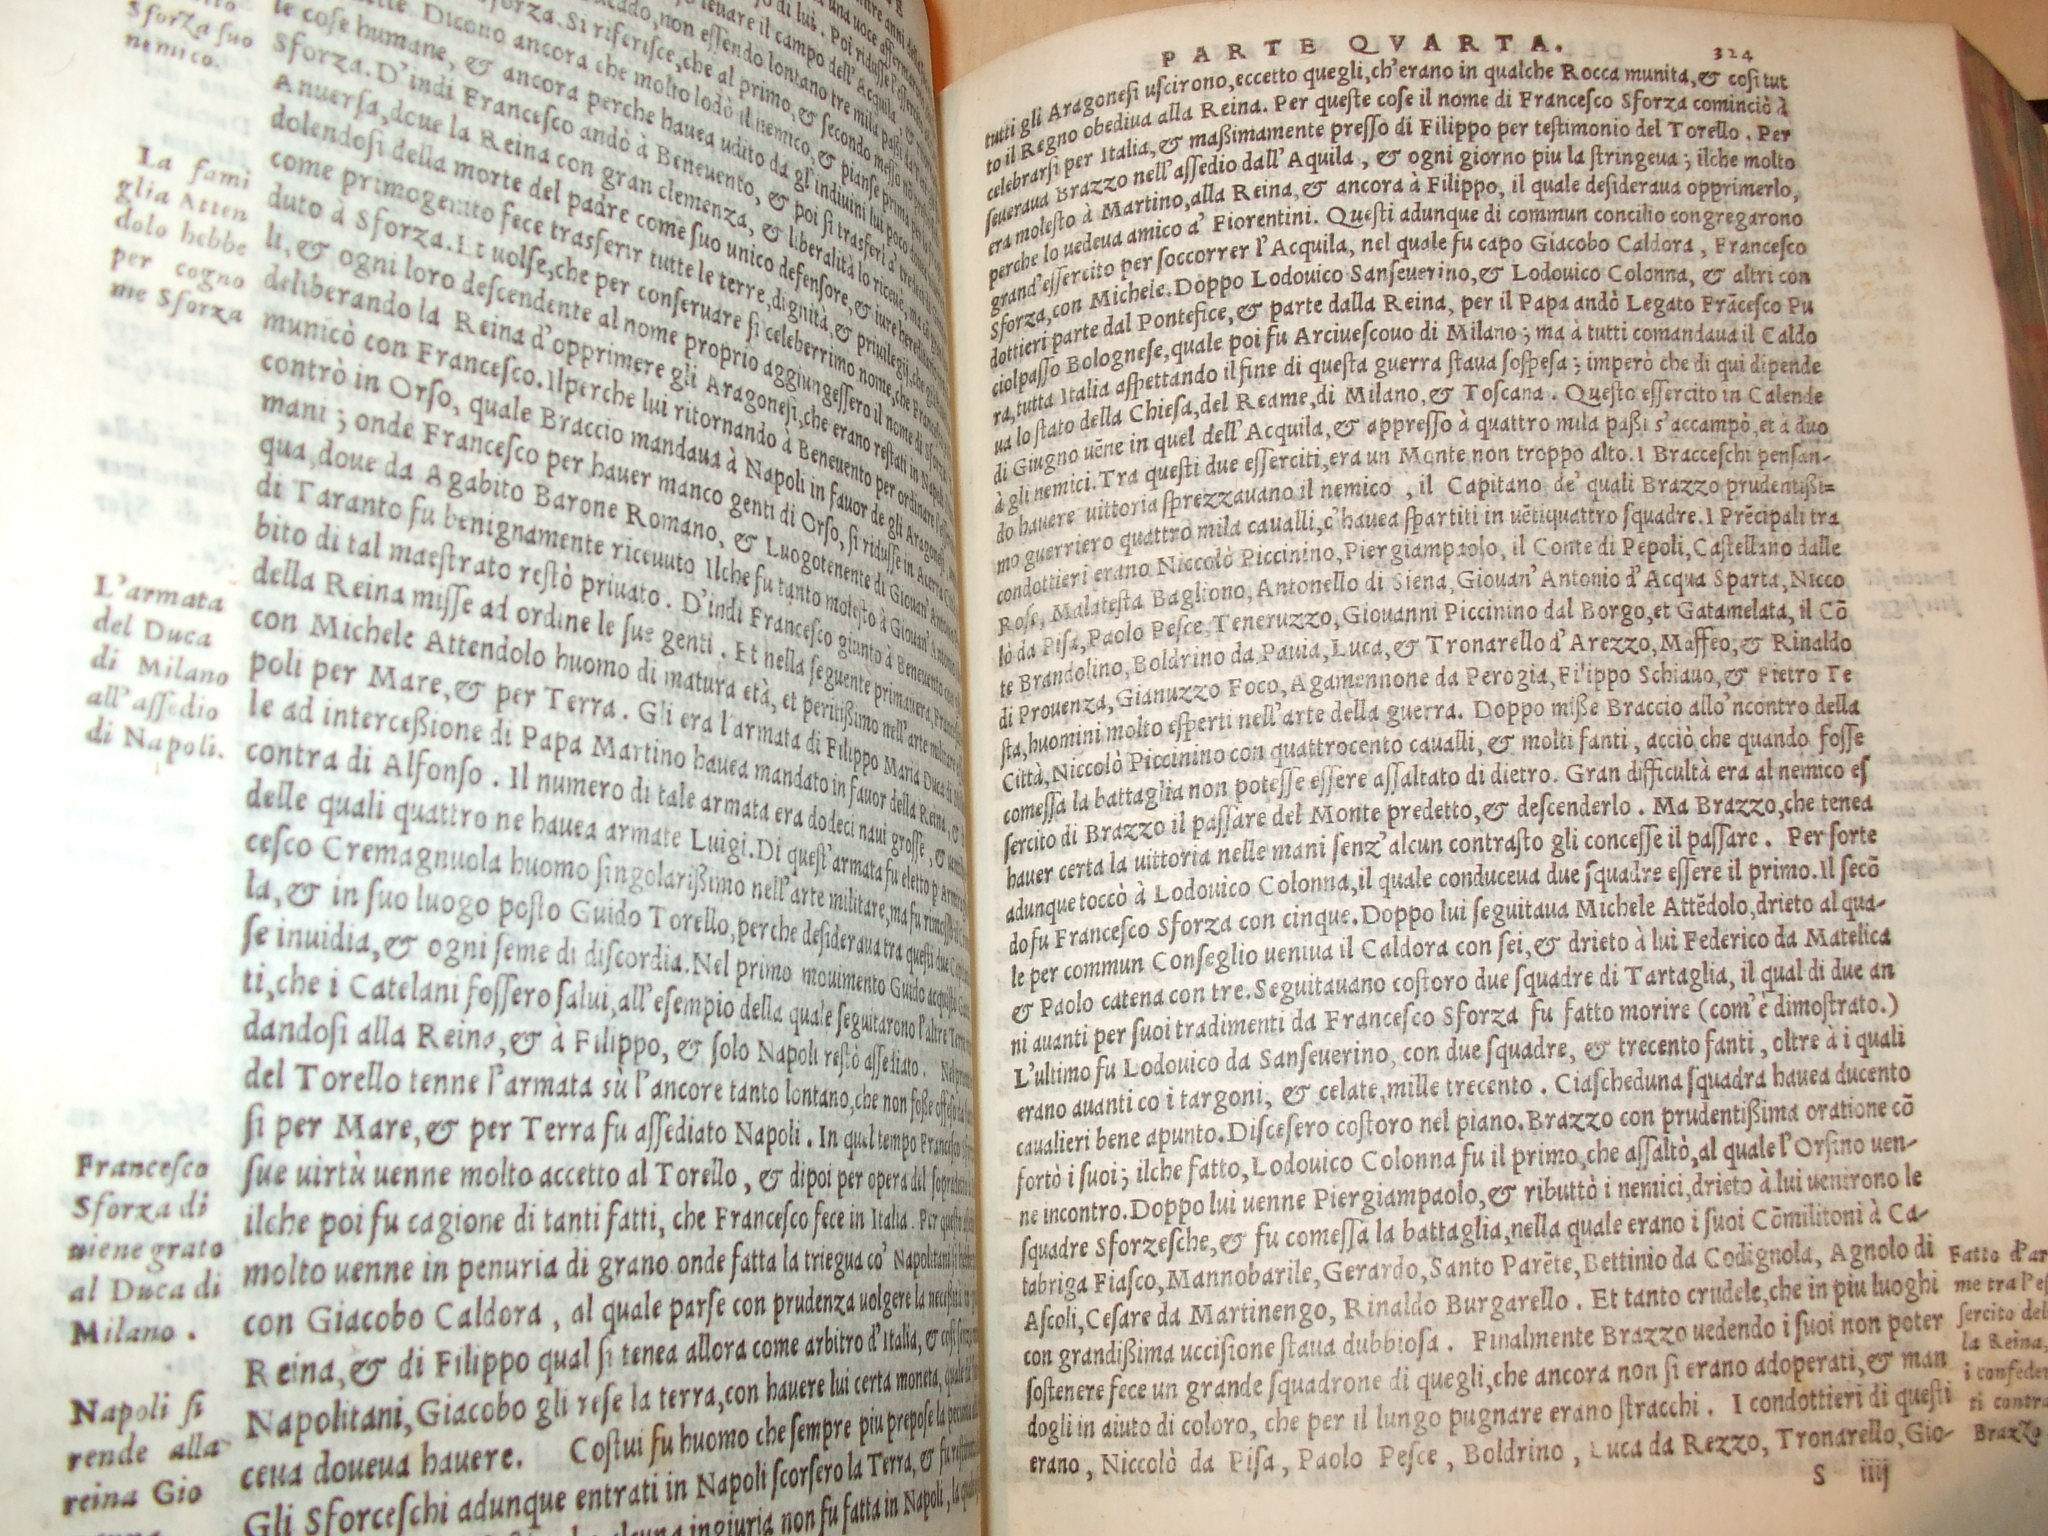 Sforza suo
nemico.
La fami
glia Atten
dolo hebbe
per cogno
me Sforza
L'armata
del Duca
di Milano
all'assedio
di Napoli.
Francesco
Sforza di
uiene grato
al Duca di
Milano.
Napoli si
rende alla
reina Gio
le cose humane, & ancora perche hauea udito da gl'indiuini lui poco
Sforza. D'indi Francesco andò à Beneuento, & poi si trasferì à
Anuersa, doue la Reina con gran clemenza, & liberalità lo riceue,
dolendosi della morte del padre come suo unico defensore, & iure
come primogenito fece trasferir tutte le terre, dignità, & priuilegij, che
duto à Sforza. Et uolse, che per conseruare si celeberrimo nome, che
li, & ogni loro descendente al nome proprio aggiungessero il nome di Sforza
deliberando la Reina d'opprimere gli Aragonesi, che erano restati in Napoli
municò con Francesco. Ilperche lui ritornando à Beneuento per ordinare
contrò in Orso, quale Braccio mandaua à Napoli in fauor de gli Aragonesi,
mani; onde Francesco per hauer manco genti di Orso, si ridusse in Auersa
qua, doue da Agabito Barone Romano, & Luogotenente di Giouan' Antonio
di Taranto fu benignamente riceuuto Ilche fu tanto molesto à Giouan' Antonio
bito di tal maestrato restò priuato. D'indi Francesco giunto à Beneuento
della Reina misse ad ordine le sue genti. Et nella seguente primauera,
con Michele Attendolo huomo di matura età, et peritißimo nell'arte militare
poli per Mare, & per Terra. Gli era l'armata di Filippo Maria Duca di
le ad intercessione di Papa Martino hauea mandato in fauor della Reina, &
contra di Alfonso. Il numero di tale armata era dodeci naui grosse, &
delle quali quattro ne hauea armate Luigi. Di quest'armata fu eletto p
cesco Cremagnuola huomo singolarißimo nell'arte militare, ma fu
la, & in suo luogo posto Guido Torello, perche desideraua tra questi due
se inuidia, & ogni seme di discordia. Nel primo mouimento Guido acquistò
ti, che i Catelani fossero salui, all'esempio della quale seguitarono l'altre Terre
dandosi alla Reina, & à Filippo, & solo Napoli restò assediato.
del Torello tenne l'armata sù l'ancore tanto lontano, che non foße
si per Mare, & per Terra fu assediato Napoli. In quel tempo Francesco
sue uirtù uenne molto accetto al Torello, & dipoi per opera del
ilche poi fu cagione di tanti fatti, che Francesco fece in Italia. Per
molto uenne in penuria di grano onde fatta la triegua co' Napolitani
con Giacobo Caldora, al quale parse con prudenza uolgere la
Reina, & di Filippo qual si tenea allora come arbitro d'Italia, & così
Napolitani, Giacobo gli rese la terra, con hauere lui certa moneta,
ceua doueua hauere. Costui fu huomo che sempre piu prepose la
Gli Sforceschi adunque entrati in Napoli scorsero la Terra, &
alcuna ingiuria non fu fatta in Napoli,
PARTE QVARTA. 324
tutti gli Aragonesi uscirono, eccetto quegli, ch'erano in qualche Rocca munita, & cosi tut
to il Regno obediua alla Reina. Per queste cose il nome di Francesco Sforza cominciò à
celebrarsi per Italia, & maßimamente presso di Filippo per testimonio del Torello. Per
seueraua Brazzo nell'assedio dall'Aquila, & ogni giorno piu la stringeua; ilche molto
era molesto à Martino, alla Reina, & ancora à Filippo, il quale desideraua opprimerlo,
perche lo uedeua amico a' Fiorentini. Questi adunque di commun concilio congregarono
grand'essercito per soccorrer l'Acquila, nel quale fu capo Giacobo Caldora, Francesco
Sforza, con Michele. Doppo Lodouico Sanseuerino, & Lodouico Colonna, & altri con
dottieri parte dal Pontefice, & parte dalla Reina, per il Papa andò Legato Frãcesco Pu
ciolpasso Bolognese, quale poi fu Arciuescouo di Milano; ma à tutti comandaua il Caldo
ra, tutta Italia aspettando il fine di questa guerra staua sospesa; imperò che di qui dipende
ua lo stato della Chiesa, del Reame, di Milano, & Toscana. Questo essercito in Calende
di Giugno uẽne in quel dell'Acquila, & appresso à quattro mila paßi s'accampò, et à duo
à gli nemici. Tra questi due esserciti, era un Monte non troppo alto. I Bracceschi pensan-
do hauere uittoria sprezzauano il nemico, il Capitano de' quali Brazzo prudentißi=
mo guerriero quattro mila caualli, c'hauea spartiti in uẽtiquattro squadre. I Prẽcipali tra
condottieri erano Niccolò Piccinino, Piergiampaolo, il Conte di Pepoli, Castellano dalle
Rose, Malatesta Baglione, Antonello di Siena, Giouan' Antonio d'Acqua Sparta, Nicco
lò da Pisa, Paolo Pesce, Teneruzzo, Giouanni Piccinino dal Borgo, et Gatamelata, il Cõ
te Brandolino, Boldrino da Pauia, Luca, & Tronarello d'Arezzo, Maffeo, & Rinaldo
di Prouenza, Gianuzzo Foco, Agamennone da Perogia, Filippo Schiauo, & Pietro Te
sta, huomini molto esperti nell'arte della guerra. Doppo miße Braccio allo'ncontro della
Città, Niccolò Piccinino con quattrocento caualli, & molti fanti, acciò che quando fosse
comessa la battaglia non potesse essere assaltato di dietro. Gran difficultà era al nemico es
sercito di Brazzo il passare del Monte predetto, & descenderlo. Ma Brazzo, che tenea
hauer certa la uittoria nelle mani senz'alcun contrasto gli concesse il passare. Per sorte
adunque toccò à Lodouico Colonna, il quale conduceua due squadre essere il primo. Il secõ
do fu Francesco Sforza con cinque. Doppo lui seguitaua Michele Attẽdolo, drieto al qua-
le per commun Conseglio ueniua il Caldora con sei, & drieto à lui Federico da Matelica
& Paolo catena con tre. Seguitauano costoro due squadre di Tartaglia, il qual di due an
ni auanti per suoi tradimenti da Francesco Sforza fu fatto morire (com'è dimostrato.)
L'ultimo fu Lodouico da Sanseuerino, con due squadre, & trecento fanti, oltre à i quali
erano auanti co i targoni, & celate, mille trecento. Ciascheduna squadra hauea ducento
caualieri bene apunto. Discesero costoro nel piano. Brazzo con prudentißima oratione cõ
fortò i suoi; ilche fatto, Lodouico Colonna fu il primo, che assaltò, al quale l'Orsino uen-
ne incontro. Doppo lui uenne Piergiampaolo, & ributtò i nemici, drieto à lui uenirono le
squadre Sforzesche, & fu comessa la battaglia, nella quale erano i suoi Cõmilitoni à Ca-
tabriga Fiasco, Mannobarile, Gerardo, Santo Parẽte, Bettinio da Codignola, Agnolo di
Ascoli, Cesare da Martinengo, Rinaldo Burgarello. Et tanto crudele, che in piu luoghi
con grandißima uccisione staua dubbiosa. Finalmente Brazzo uedendo i suoi non poter
sostenere fece un grande squadrone di quegli, che ancora non si erano adoperati, & man
dogli in aiuto di coloro, che per il lungo pugnare erano stracchi. I condottieri di questi
erano, Niccolò da Pisa, Paolo Pesce, Boldrino, Luca da Rezzo, Tronarello, Gio-
S iiij
Fatto d'ar
me tra l'es
sercito del
la Reina,
i confeder
ti contra
Brazzo